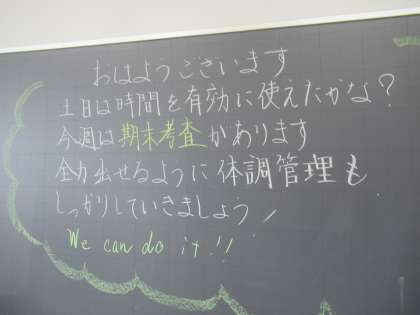 おはようございます
土日は時間を有効に使えたかな?
今週は期末考査があります
全力出せるように体調管理も
しっかりしていきましょう!
We can do it!!